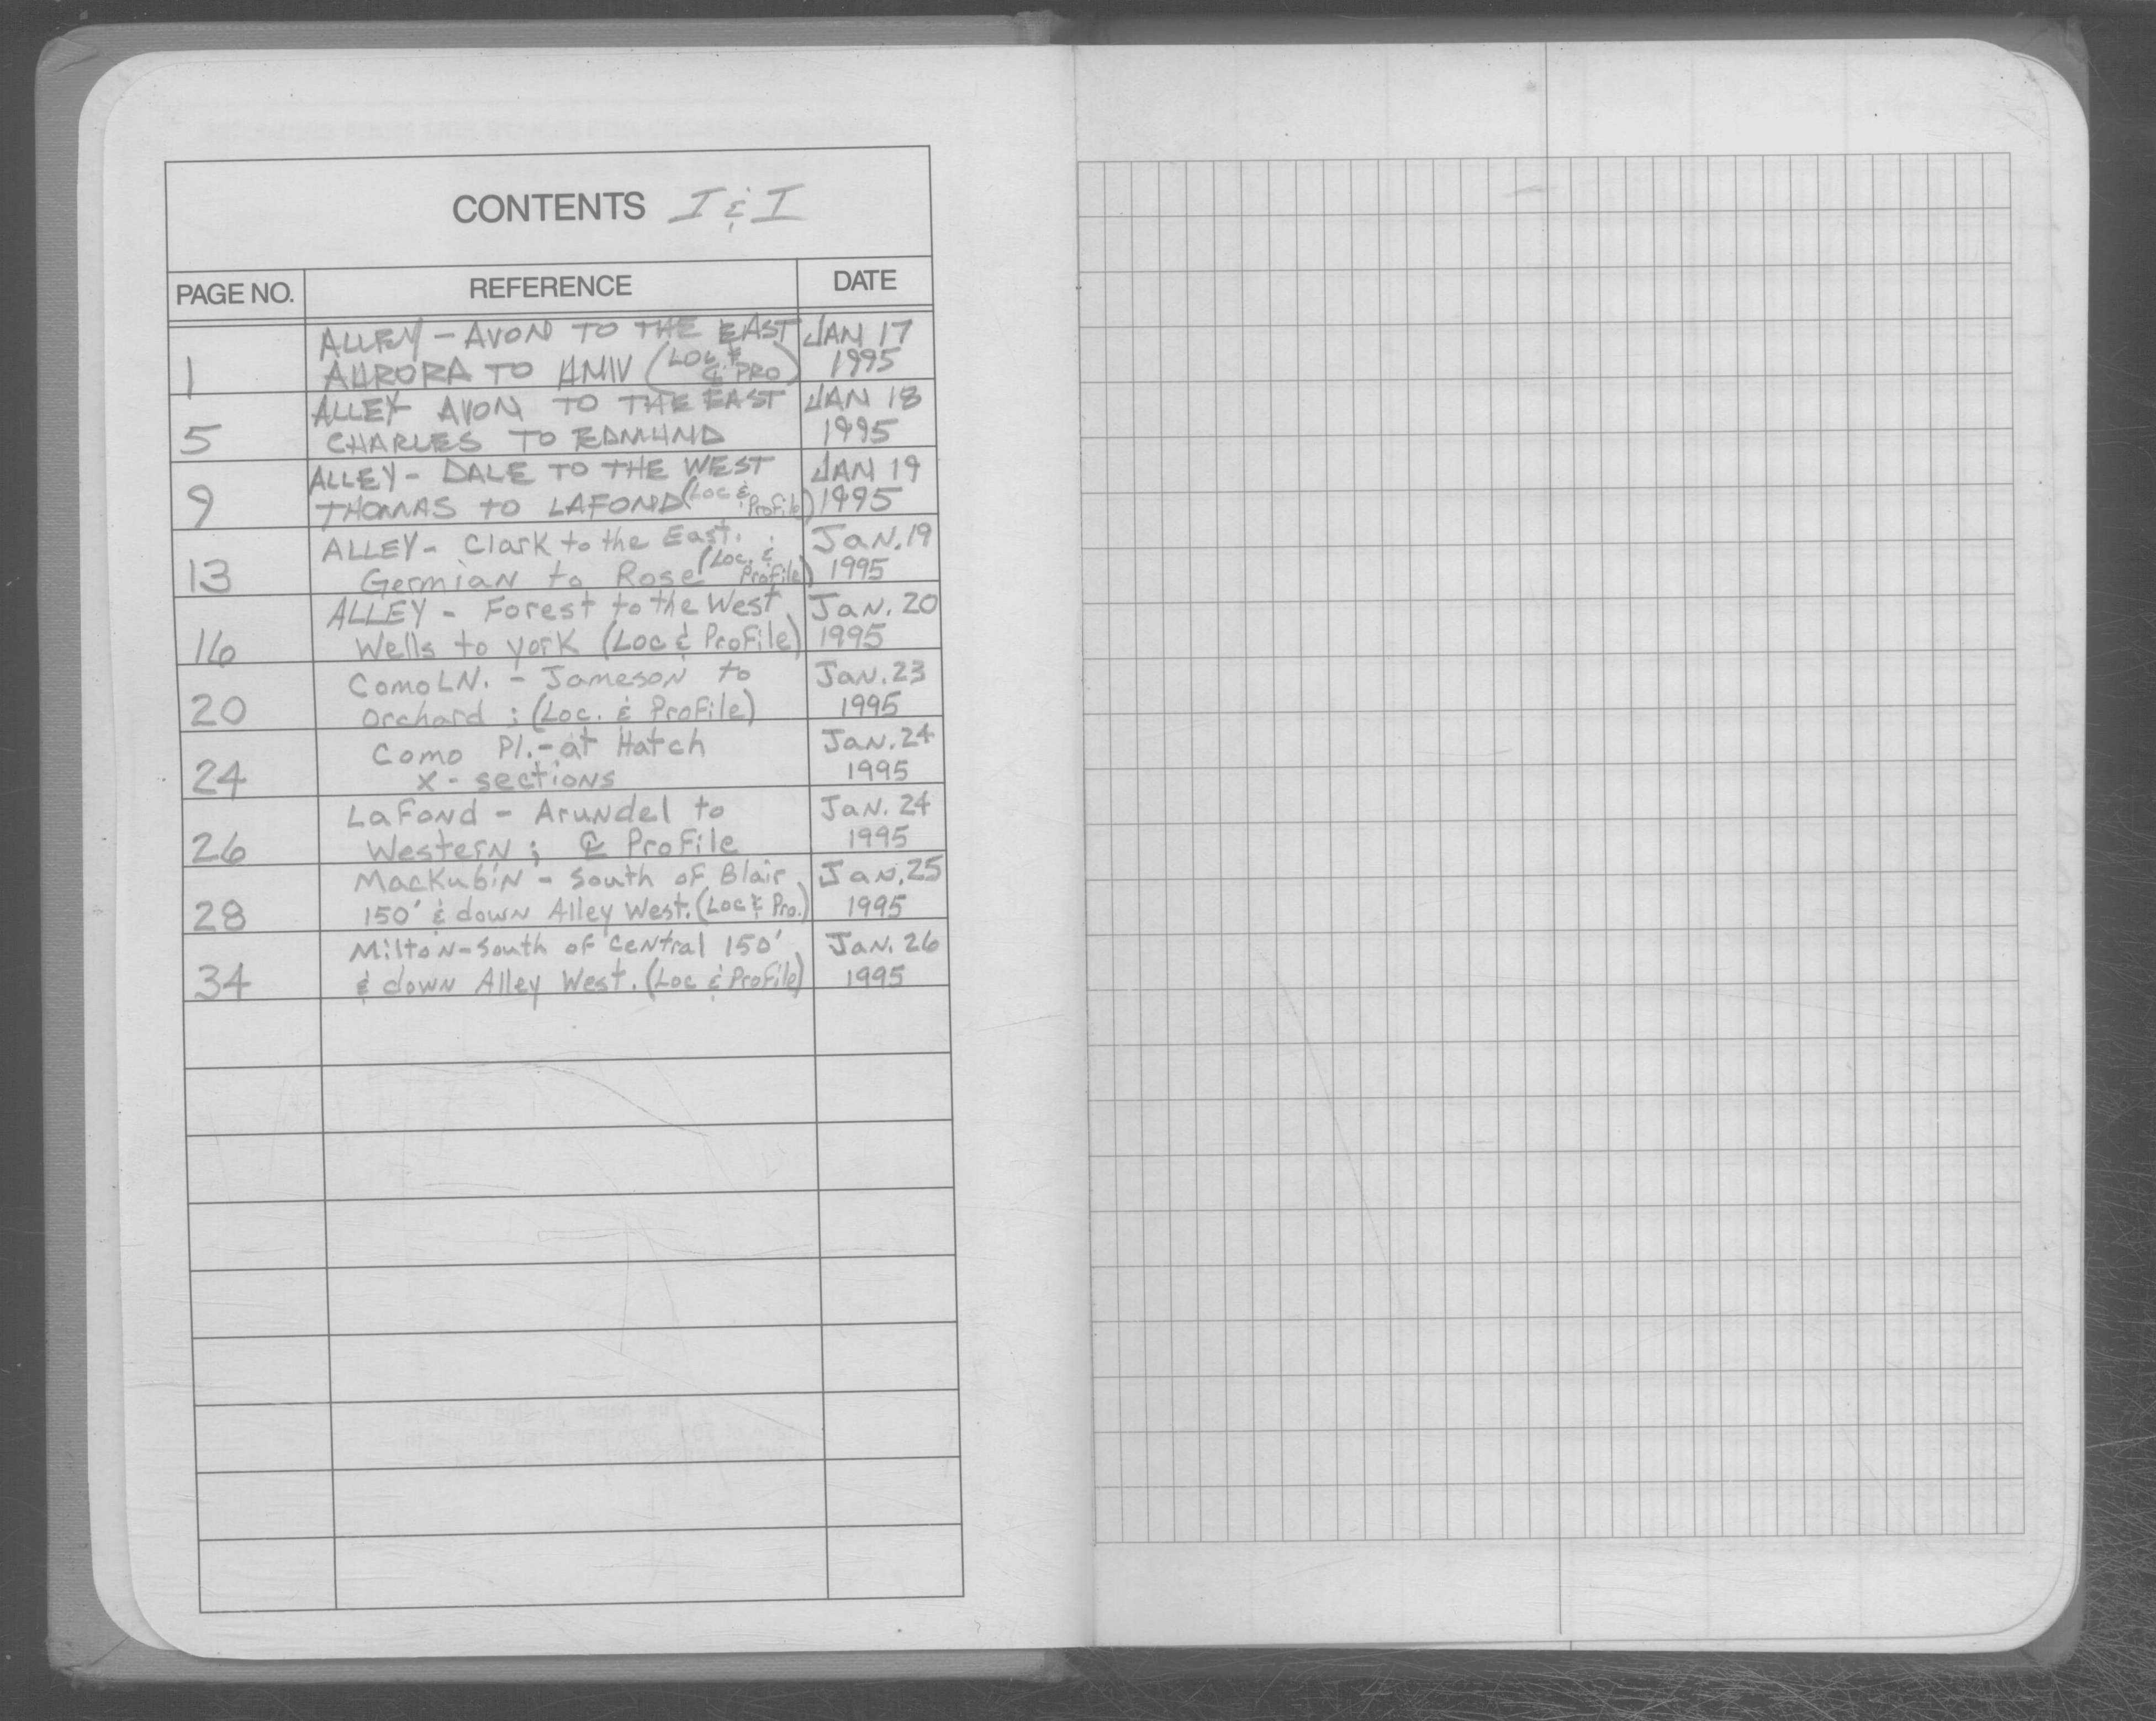 CONTENTS I & I
PAGE NO. REFERENCE DATE
ALLEY - AVON TO THE EAST JAN 17
1 AURORA TO UNIV (LOC. & ℄ PRO) 1995
ALLEY AVON TO THE EAST JAN 18
5 CHARLES TO EDMUND 1995
ALLEY - DALE TO THE WEST JAN 19
9 THOMAS TO LAFOND (Loc & Profile) 1995
ALLEY - Clark to the East. Jan. 19
13 Germian to Rose (Loc. & Profile) 1995
ALLEY - Forest to the West Jan. 20
16 Wells to york (Loc & Profile) 1995
Como LN. - Jameson to Jan. 23
20 Orchard ; (Loc. & Profile) 1995
Como Pl. - at Hatch Jan. 24
24 X - sections 1995
LaFond - Arundel to Jan. 24
26 Western ; ℄ Profile 1995
Mackubin - South of Blair Jan. 25
28 150' & down Alley West. (Loc & Pro.) 1995
Milton - South of Central 150' Jan. 26
34 & down Alley West. (Loc & Profile) 1995